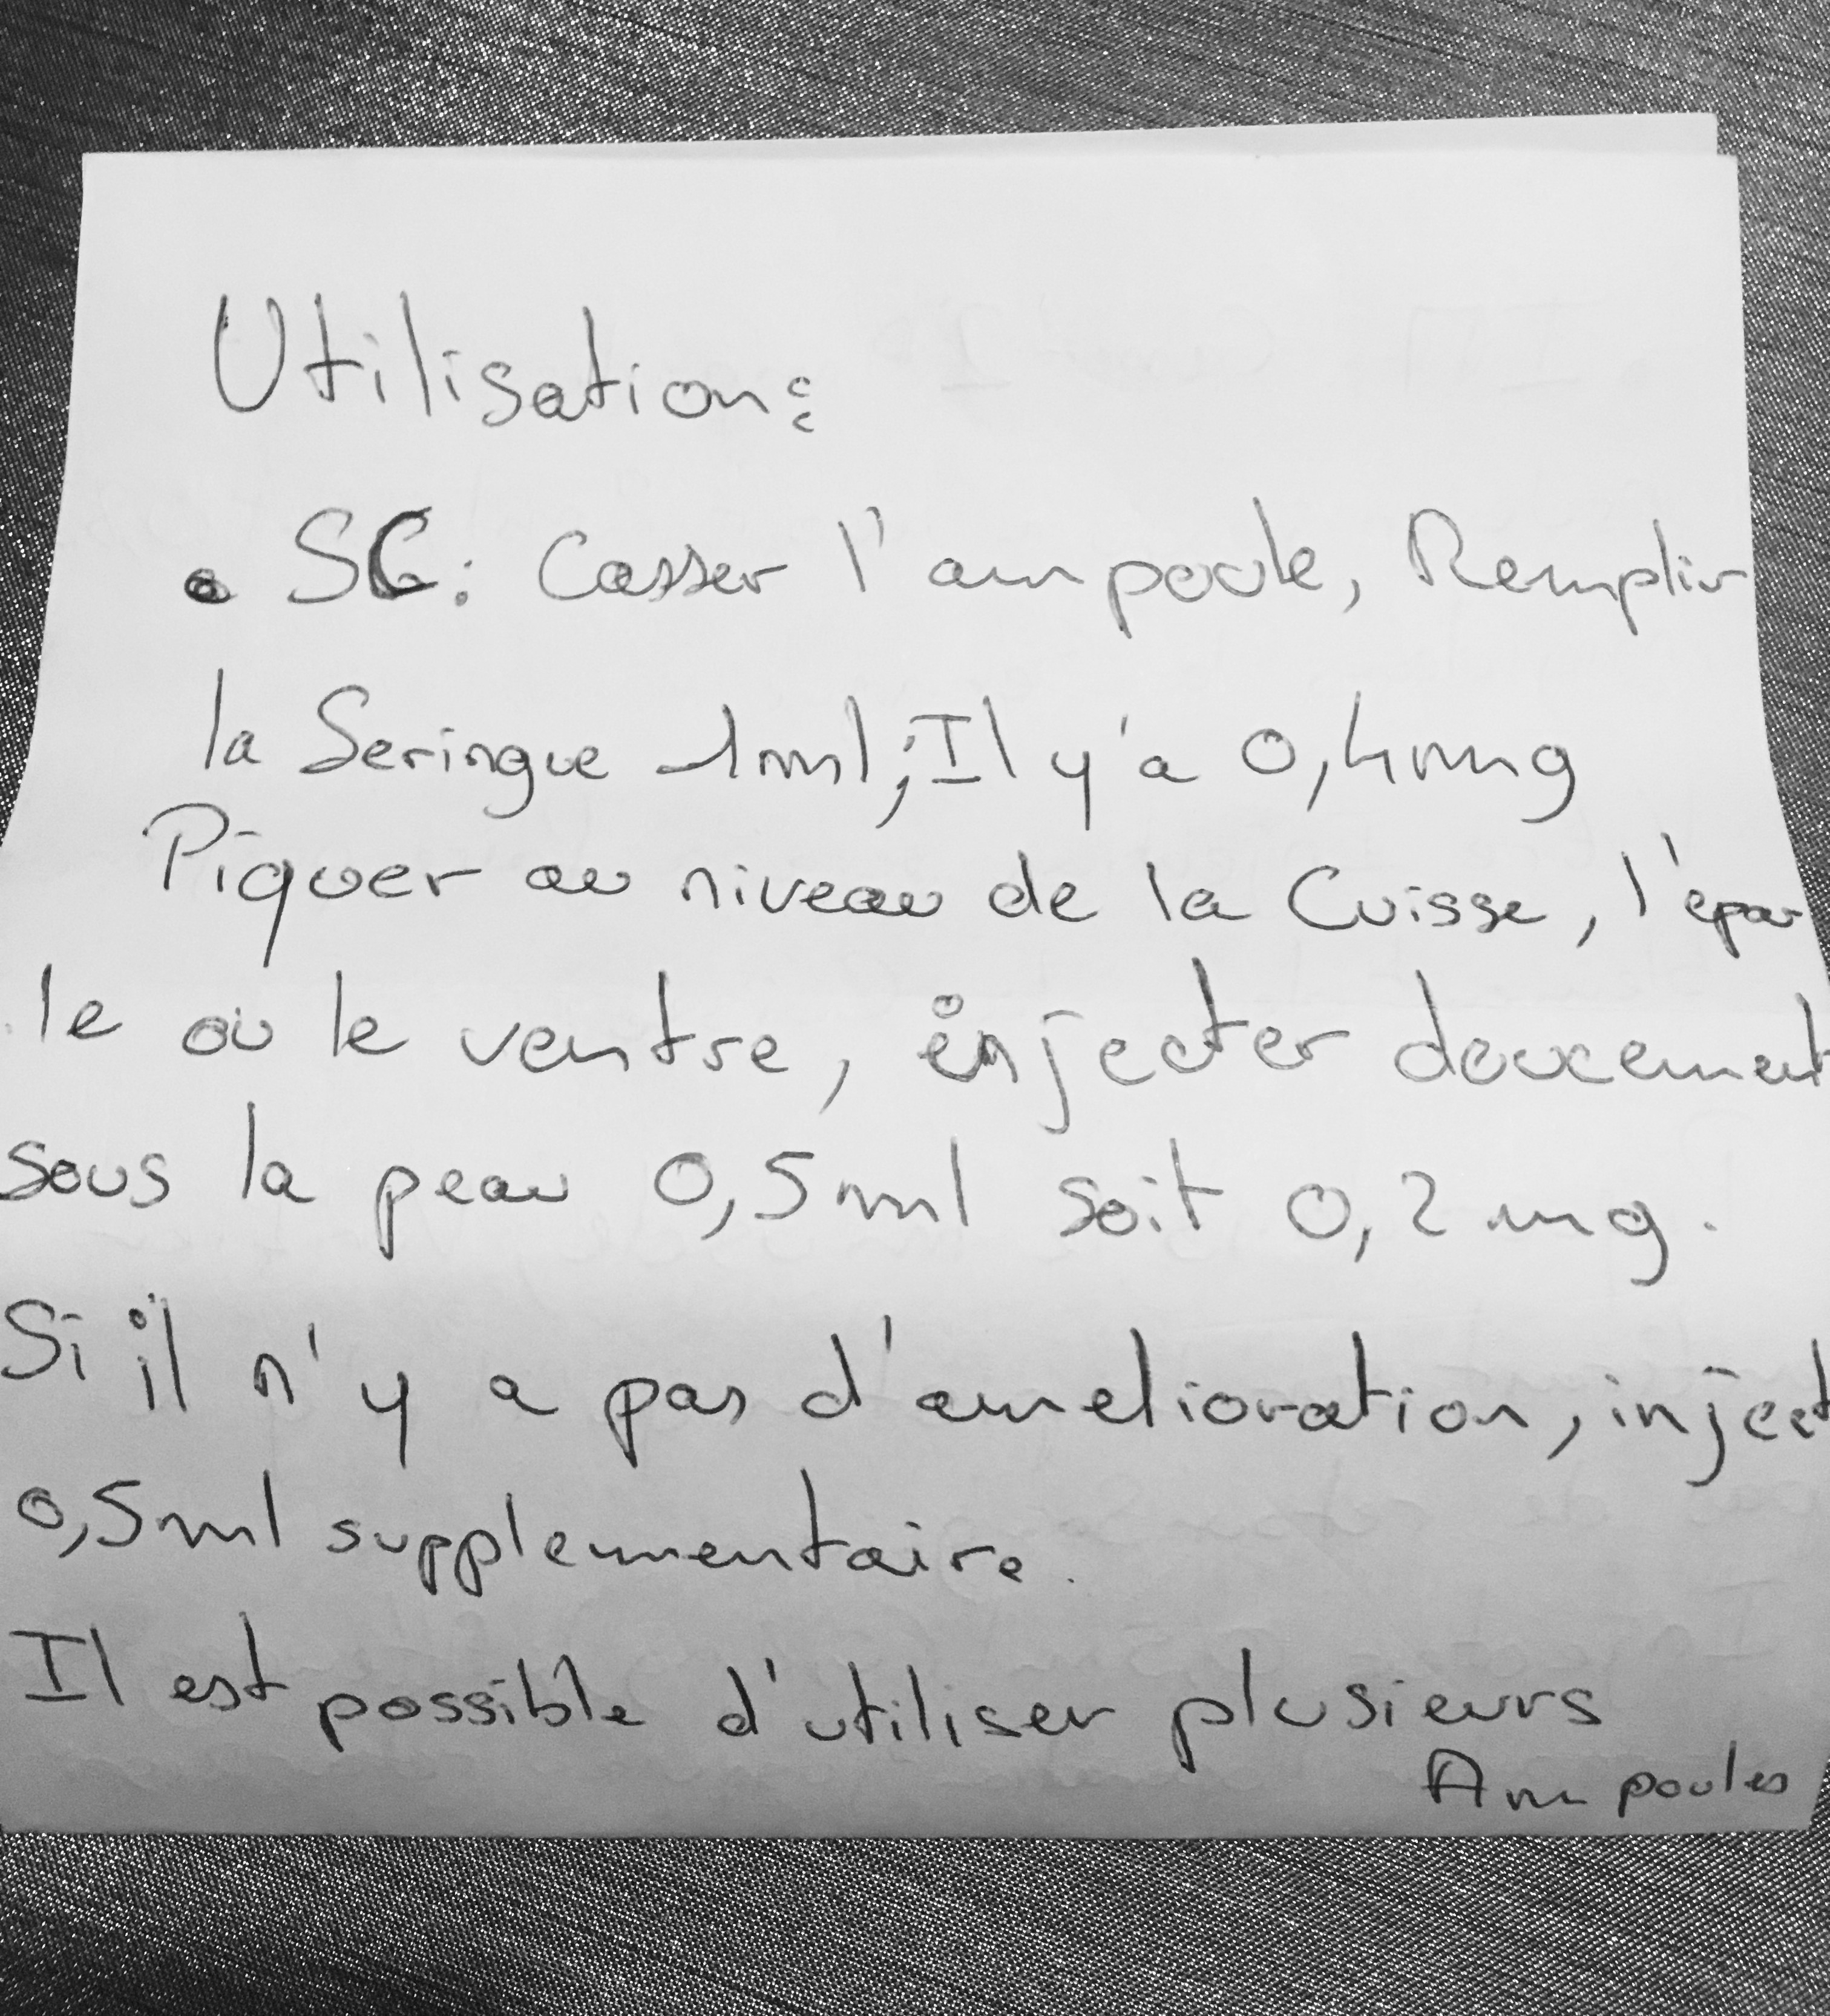 Utilisation:
• SC: Casser l'ampoule, Remplir
la Seringue 1ml; Il y'a 0,4mg
Piquer au niveau de la Cuisse, l'epau
le ou le ventre, injecter doucement
sous la peau 0,5ml soit 0,2mg.
Si il n'y a pas d'amelioration, inject
0,5ml supplementaire.
Il est possible d'utiliser plusieurs
Ampoules